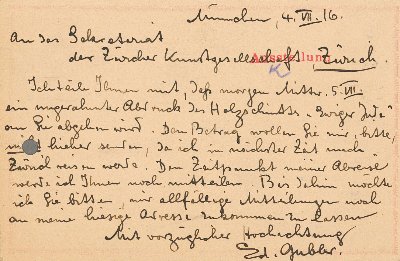 München, 4. VII. 16.
An das Sekretariat
der Zürcher Kunstgesellschaft, Zürich.
Ausstellung
Ich teile Ihnen mit, daß morgen Mittw. 5. VII.
ein Abdruck des Holzschnitts „Ewiger Jude"
an Sie abgehen wird. Den Betrag wollen Sie mir, bitte,
hieher senden, da ich in nächster Zeit nach
Zürich reisen werde. Den Zeitpunkt meiner Abreise
werde ich Ihnen noch mitteilen. Bis dahin möchte
ich Sie bitten, mir allfällige Mitteilungen noch
an meine hiesige Adresse zukommen zu lassen
Mit vorzüglicher Hochachtung
Ed. Gubler.